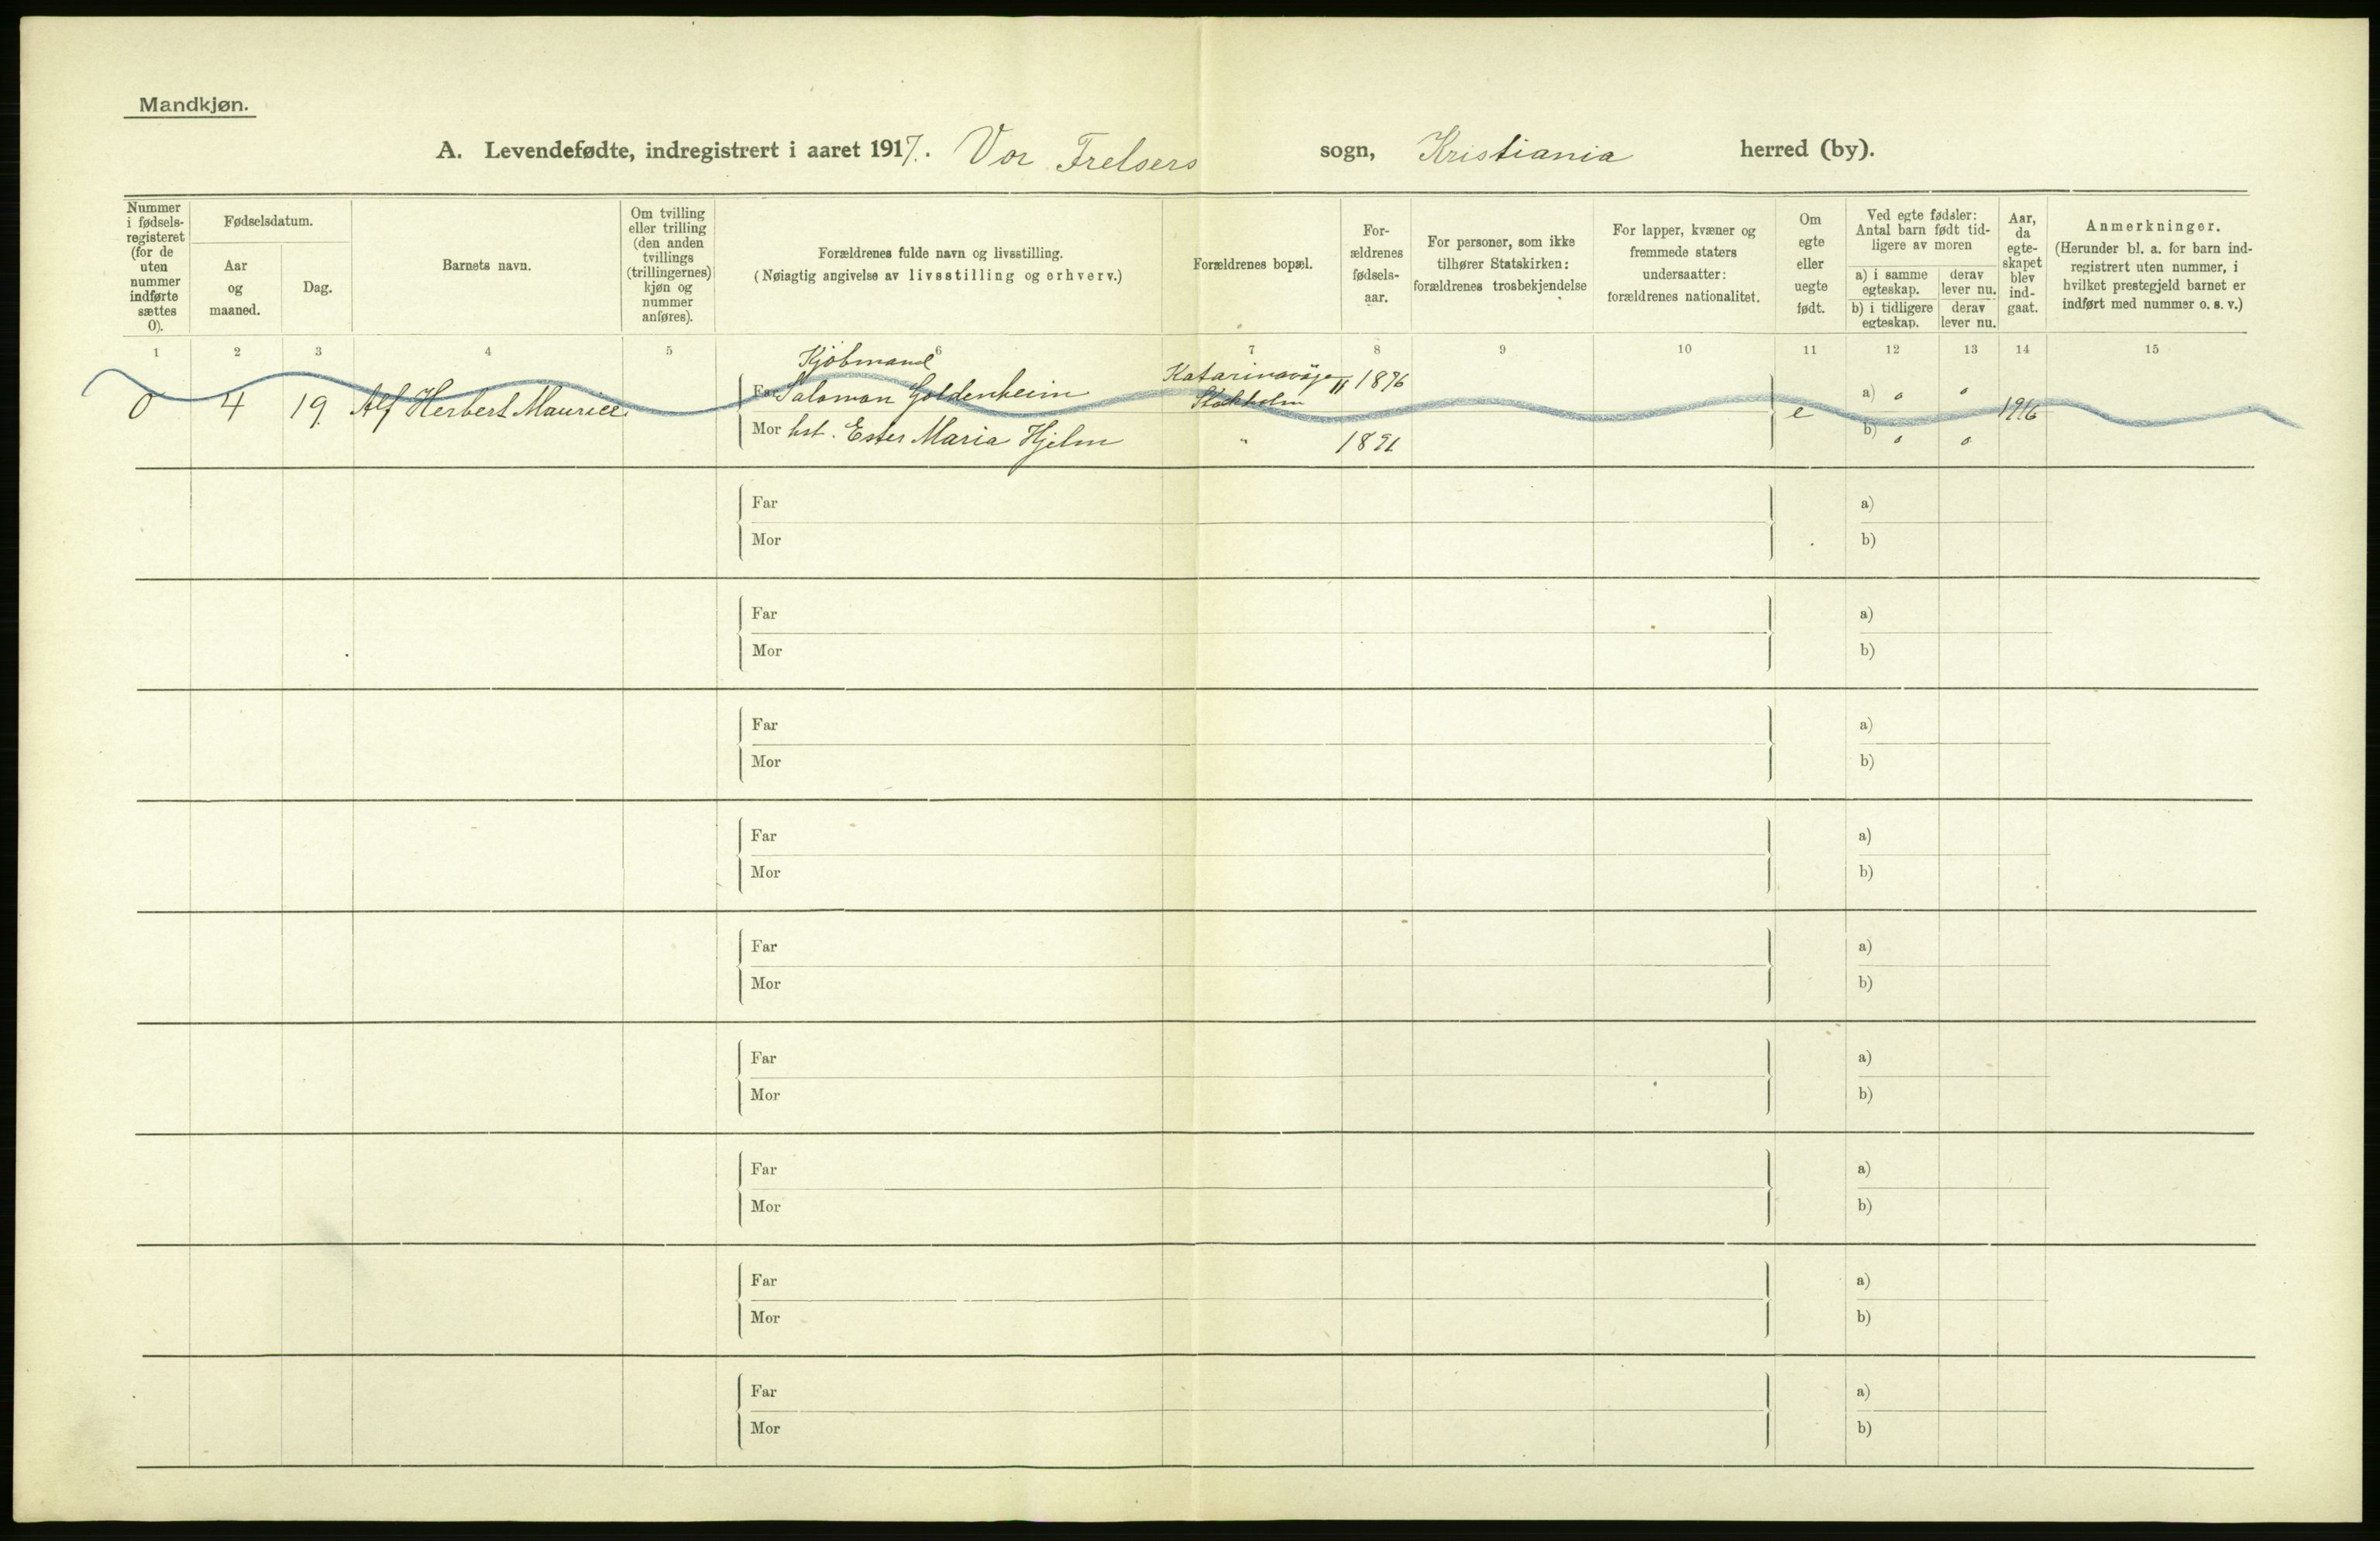 Mandkjøn.
A. Levendefødte, indregistrert i aaret 1917. Vor Frelsers sogn, Kristiania herred (by).
Nummer i fødsels- registeret (for de uten nummer indførte sættes 0).
Fødselsdatum.
Aar og maaned.
Dag.
Barnets navn.
Om tvilling eller trilling (den anden tvillings (trillingernes) kjøn og nummer anføres).
Forældrenes fulde navn og livsstilling.
(Nøiagtig angivelse av livsstilling og erhverv.)
Forældrenes bopæl.
For- ældrenes fødsels- aar.
For personer, som ikke tilhører Statskirken: forældrenes trosbekjendelse
For lapper, kvæner og fremmede staters undersaatter: forældrenes nationalitet.
Om egte eller uegte født.
Ved egte fødsler: Antal barn født tid- ligere av moren
a) i samme egteskap.
derav lever nu.
b) i tidligere egteskap.
derav lever nu.
Aar, da egte- skapet blev ind- gaat.
Anmerkninger.
(Herunder bl. a. for barn ind- registrert uten nummer, i hvilket prestegjeld barnet er indført med nummer o. s. v.)
1 2 3 4 5 6 7 8 9 10 11 12 13 14 15
Kjöbmand
0 4 19. Alf Herbert Maurice Far Salomon Goldenheim 11 1896 e a) 0 0 1916
Stockholm
Mor hst. Ester Maria Hjelm " 1891 b) 0 0
Far a)
Mor b)
Far a)
Mor b)
Far a)
Mor b)
Far a)
Mor b)
Far a)
Mor b)
Far a)
Mor b)
Far a)
Mor b)
Far a)
Mor b)
Far a)
Mor b)